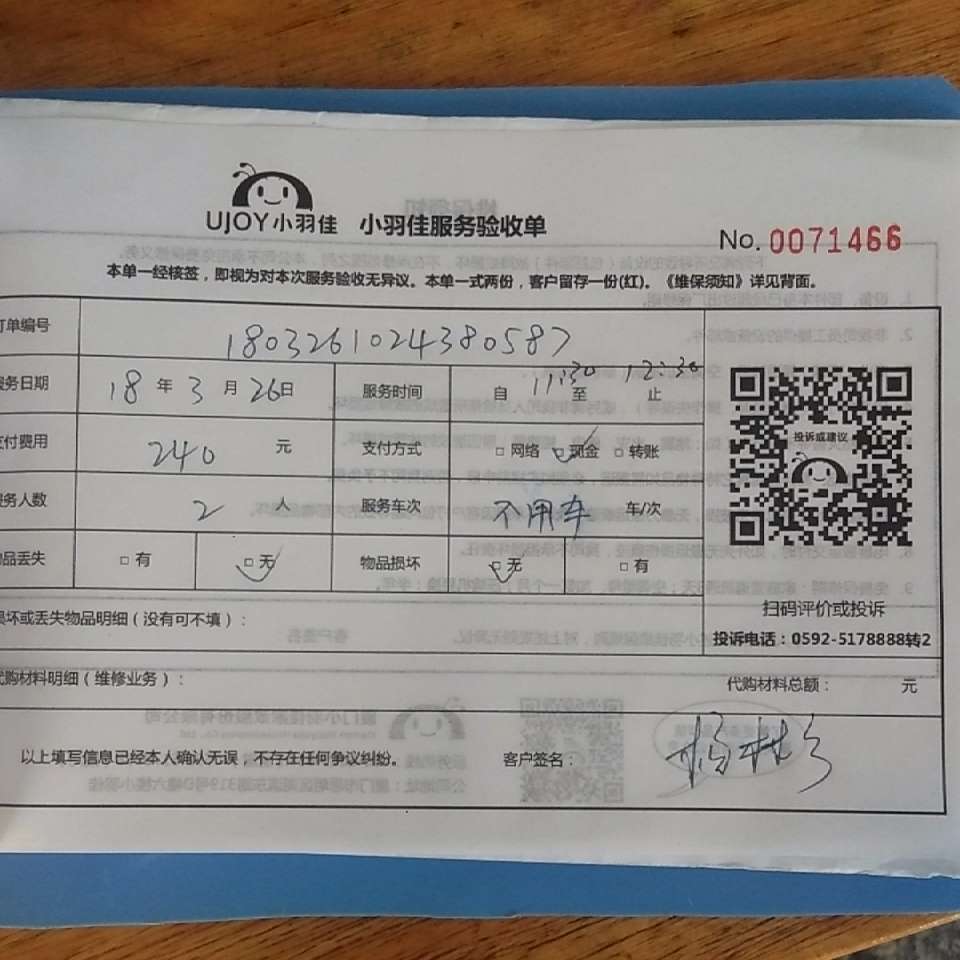 UJOY小羽佳 小羽佳服务验收单
No. 0071466
本单一经核签，即视为对本次服务验收无异议。本单一式两份，客户留存一份(红)。《维保须知》详见背面。
订单编号 1803261024380587
服务日期 18 年 3 月 26日 服务时间 自 11:30 至 12:30 止
支付费用 240 元 支付方式 □ 网络 □ 现金 □ 转账
投诉或建议
服务人数 2 人 服务车次 不用车 车/次
物品丢失 □ 有 □ 无 物品损坏 □ 无 □ 有
扫码评价或投诉
损坏或丢失物品明细（没有可不填）：
投诉电话：0592-5178888转2
代购材料明细（维修业务）： 代购材料总额： 元
以上填写信息已经本人确认无误，不存在任何争议纠纷。 客户签名：